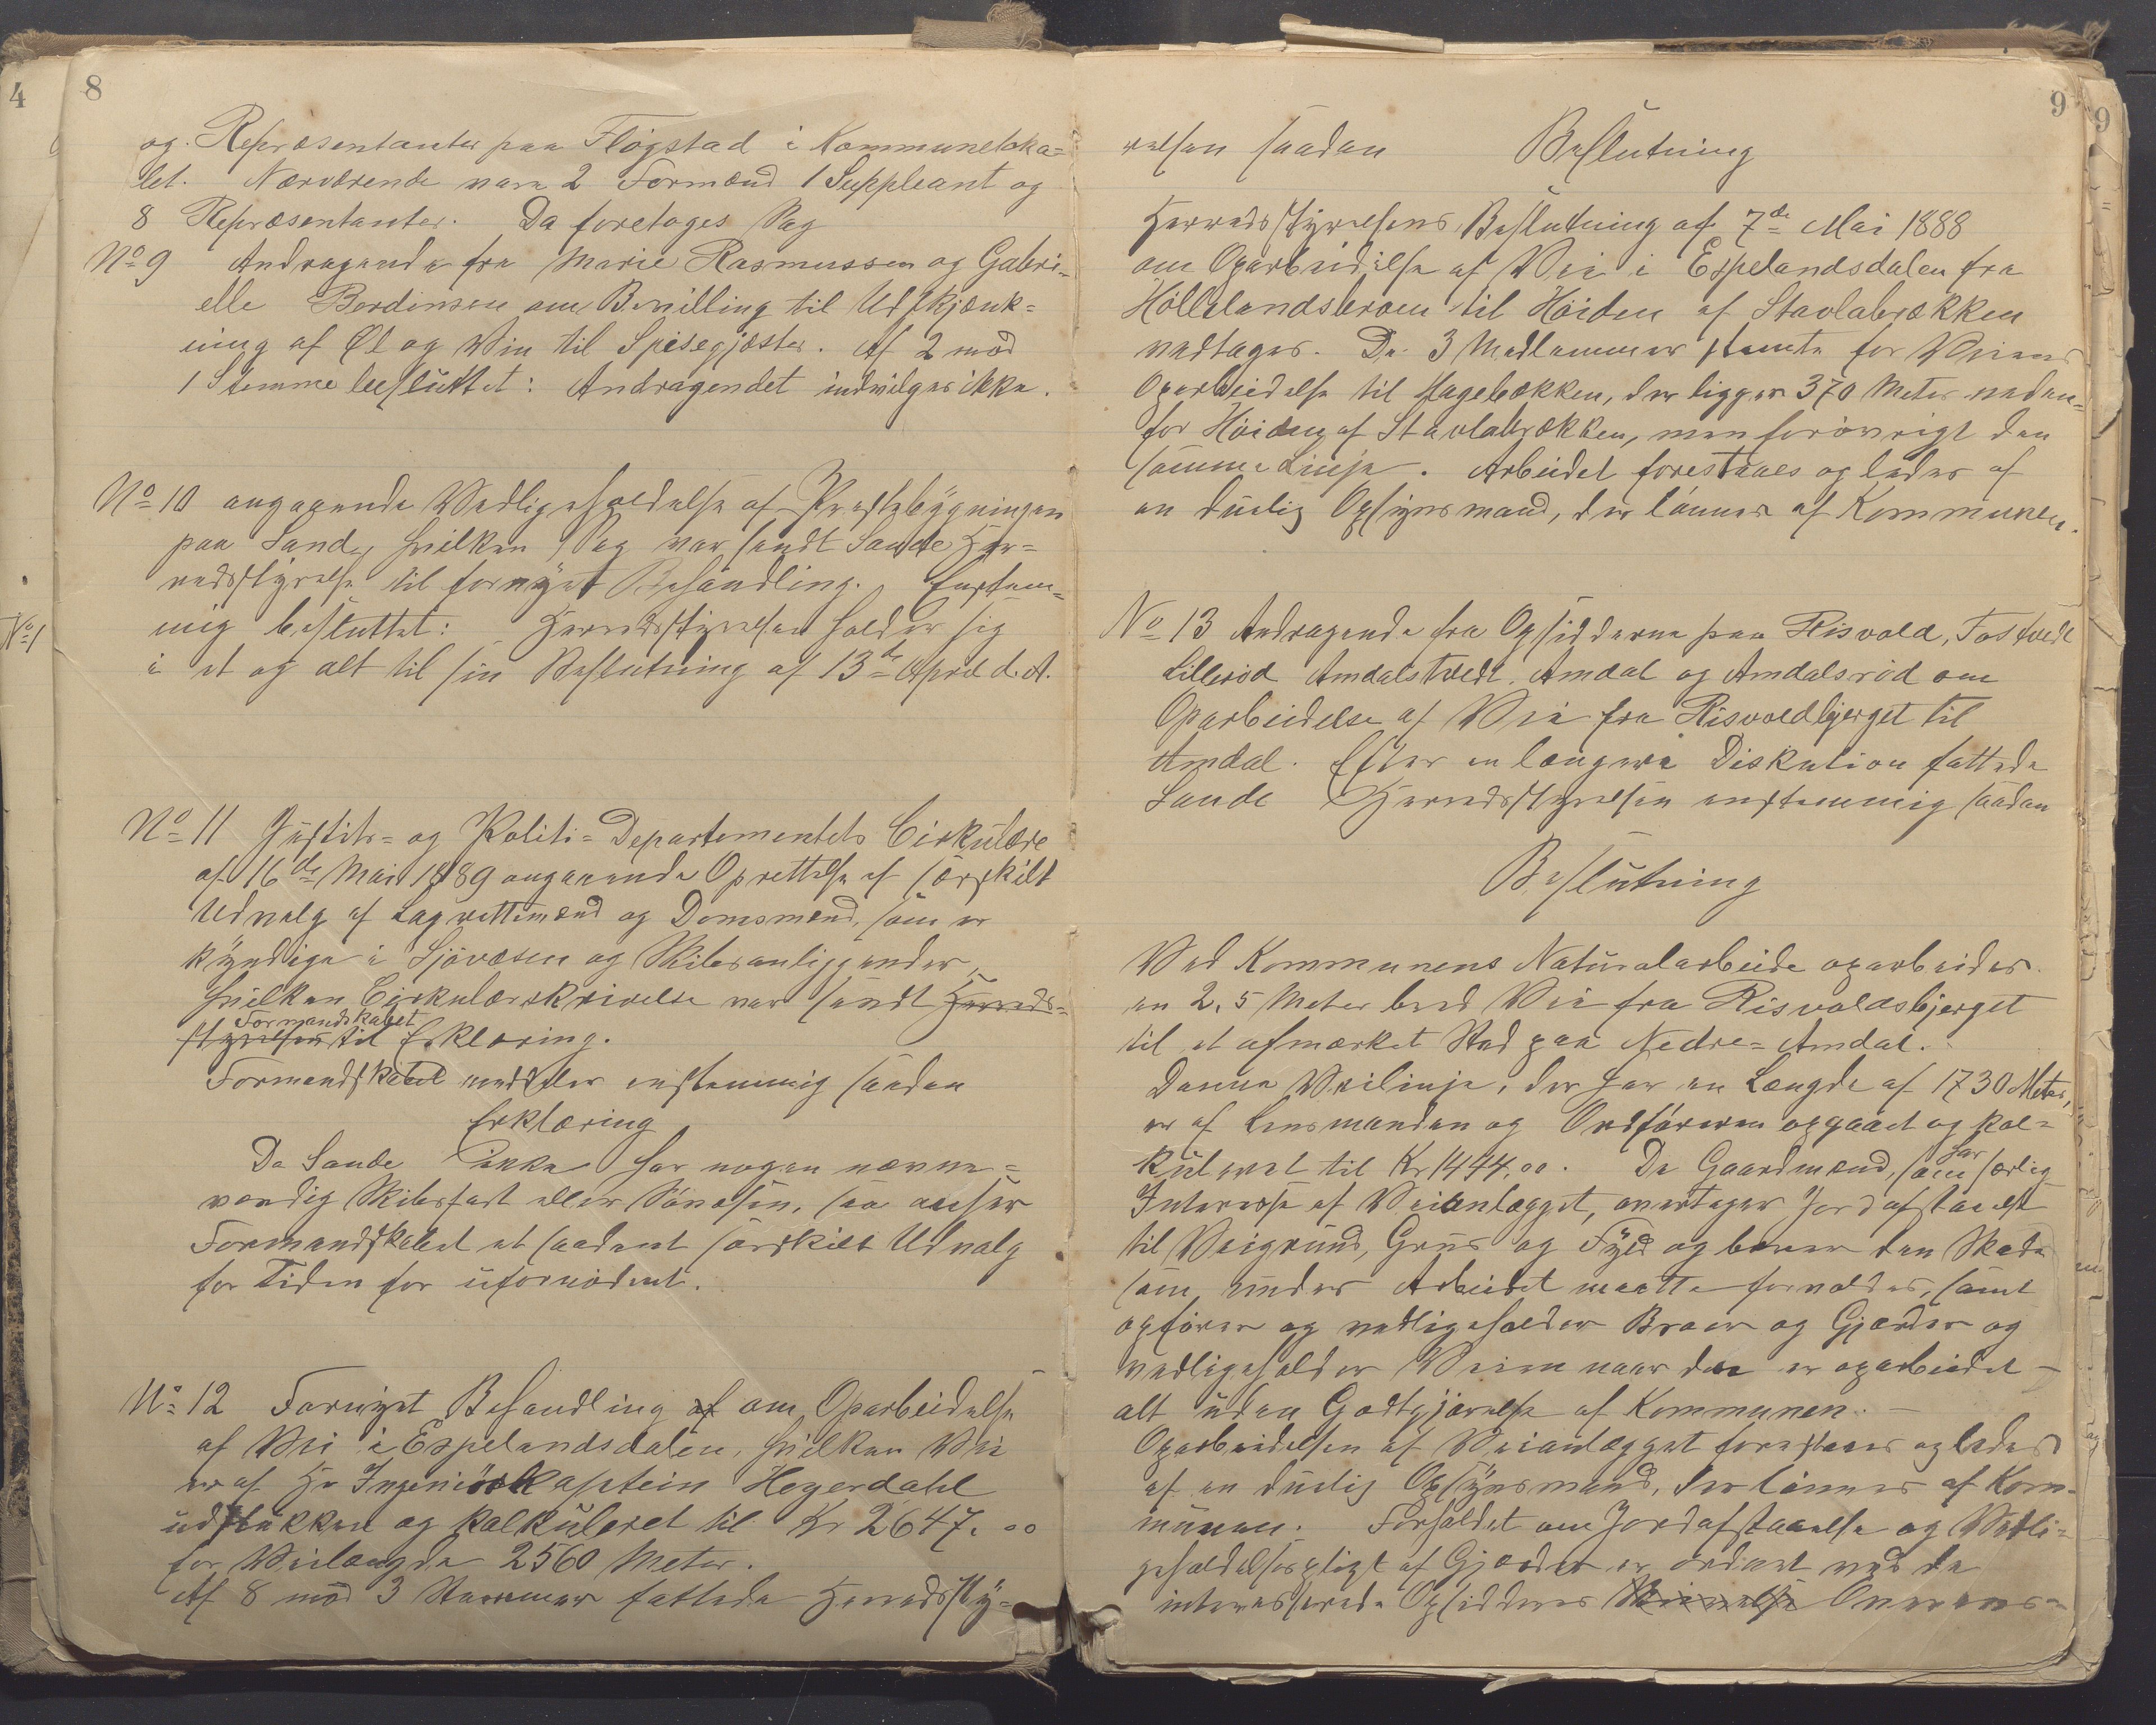 4
8
og Repræsentanter paa Flögstad i Kommuneloka=
let. Nærværende vare 2 Formænd 1 Suppleant og
8 Repræsentanter. Da foretoges Sag
No 9 Andragende fra Marie Rasmussen og Gabri=
elle Berdinsen om Bevilling til Udskjænk=
ning af Øl og Vin til Spisegjæster. Af 2 mod
1 Stemme besluttet: Andragendet indvilges ikke.
No 10 angaaende Vedligeholdelse af Præstebygningen
paa Sande, hvilken Sag var sendt Sande Her=
redsstyrelse til fornyet Behandling. Enstem=
mig besluttet: Herredsstyrelsen holder sig
i et og alt til sin Beslutning af 13de April d. A.
No 1
No 11 Justits= og Politi=Departementets Cirkulære
af 16de Mai 1889 angaaende Oprettelse af særskilt
Udvalg af Lagrettemænd og Domsmænd, som er
kyndige i Sjövæsen og Skibsanliggender,
hvilken Cirkulærskrivelse var sendt Herreds=
Formandskabet
styrelsen til Erklæring.
Formandskabet meddeler enstemmig saadan
Erklæring
Da Sande ikke har nogen nævne=
værdig Skibsfart eller Sövæsen, saa anser
Formandskabet et saadant särskilt Udvalg
for Tiden for ufornödent.
No 12 Fornyet Behandling af om Oparbeidelse
af Vei i Espelandsdalen, hvilken Vei
er af Hr Ingeniörkaptein Hegerdahl
udstukket og kalkuleret til Kr 2647.00
for Veilængde 2560 Meter.
Af 8 mod 3 Stemmer fattede Herredssty=
9
9
relsen saadan Beslutning
Herredsstyrelsens Beslutning af 7de Mai 1888
om Oparbeidelse af Vei i Espelandsdalen fra
Höllelandsbroen til Höiden af Stavlabrækken
vedtages. De 3 Medlemmer stemte for Veiens
Oparbeidelse til Hagebækken, der ligger 370 Meter neden=
for Höiden af Stavlabrækken, men forövrigt den
samme Linje. Arbeidet forestaaes og ledes af
en duelig Opsynsmand, der lönnes af Kommunen.
No 13 Andragende fra Opsidderne paa Risvold, Fostvedt
Lilleröd Amdalstvedt, Amdal og Amdalsröd om
Oparbeidelse af Vei fra Risvoldbjerget til
Amdal. Efter en længere Diskution fattede
Sande Herredsstyrelsen enstemmig saadan
Beslutning
Ved Kommunens Naturalarbeide oparbeides
en 2,5 Meter bred Vei fra Risvoldsbjerget
til et afmærket Sted paa Nedre=Amdal.
Denne Veilinje, der har en Længde af 1730 Meter,
er af Lensmanden og Ordföreren opgaaet og kal=
kuleret til Kr 1444.00. De Gaardmænd, som har særlig
Interesse af Veianlægget, overtager Jordafstaaelse
til Veigrund, Grus og Fyld og bærer den Skade
som under Arbeidet maatte forvoldes, samt
opförer og vedligeholder Broer og Gjærder og
vedligeholder Veien naar den er oparbeidet –
alt uden Godtgjörelse af Kommunen. –
Oparbeidelsen af Veianlægget forestaaes og ledes
af en duelig Opsynsmand, der lönnes af Kom=
munen. Forholdet om Jordafstaaelse og Vedli=
geholdelsespligt af Gjærder er ordnet ved de
interesserede Opsidderes Overens=